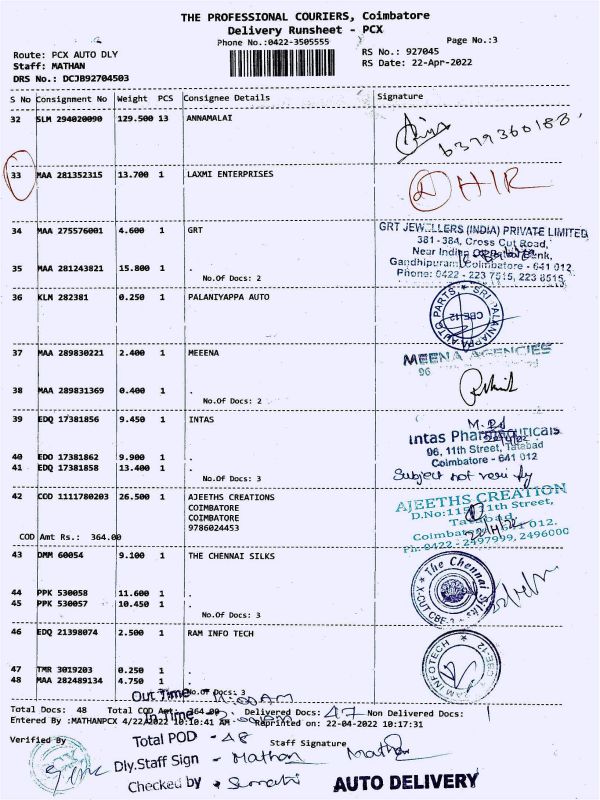 THE PROFESSIONAL COURIERS, Coimbatore
Delivery Runsheet - PCX
Phone No.:0422-3505555 Page No.:3
Route: PCX AUTO DLY RS No.: 927045
Staff: MATHAN RS Date: 22-Apr-2022
DRS No.: DCJB92704503
S No Consignment No Weight PCS Consignee Details Signature
32 SLM 294020090 129.500 13 ANNAMALAI
33 MAA 281352315 13.700 1 LAXMI ENTERPRISES
34 MAA 275576001 4.600 1 GRT
GRT JEWELLERS (INDIA) PRIVATE LIMITED
381 - 384, Cross Cut Road,
Near Indian Bank,
Gandhipuram, Coimbatore - 641 012
Phone: 0422 - 223 7515, 223 8515
35 MAA 281243821 15.800 1 .
No.Of Docs: 2
36 KLM 282381 0.250 1 PALANIYAPPA AUTO
37 MAA 289830221 2.400 1 MEEENA
MEENA AGENCIES
96
38 MAA 289831369 0.400 1 .
No.Of Docs: 2
39 EDQ 17381856 9.450 1 INTAS
Intas Pharmaceuticals
96, 11th Street, Tatabad
Coimbatore - 641 012
40 EDO 17381862 9.900 1 .
41 EDQ 17381858 13.400 1 .
No.Of Docs: 3
42 COD 1111780203 26.500 1 AJEETHS CREATIONS
COIMBATORE
COIMBATORE
9786024453
AJEETHS CREATION
COD Amt Rs.: 364.00
43 DMM 60054 9.100 1 THE CHENNAI SILKS
The Chennai Silks
44 PPK 530058 11.600 1 .
45 PPK 530057 10.450 1 .
No.Of Docs: 3
46 EDQ 21398074 2.500 1 RAM INFO TECH
47 TMR 3019203 0.250 1 .
48 MAA 282489134 4.750 1 .
No.Of Docs: 3
Out Time
Total Docs: 48 Total COD Amt: 364.00 Delivered Docs: 47 Non Delivered Docs: 1
In Time
Entered By :MATHANPCX 4/22/2022 10:10:41 AM Reprinted on: 22-04-2022 10:17:31
Verified By Total POD - 48 Staff Signature
Dly.Staff Sign - Mathan Mathan
Checked by
AUTO DELIVERY